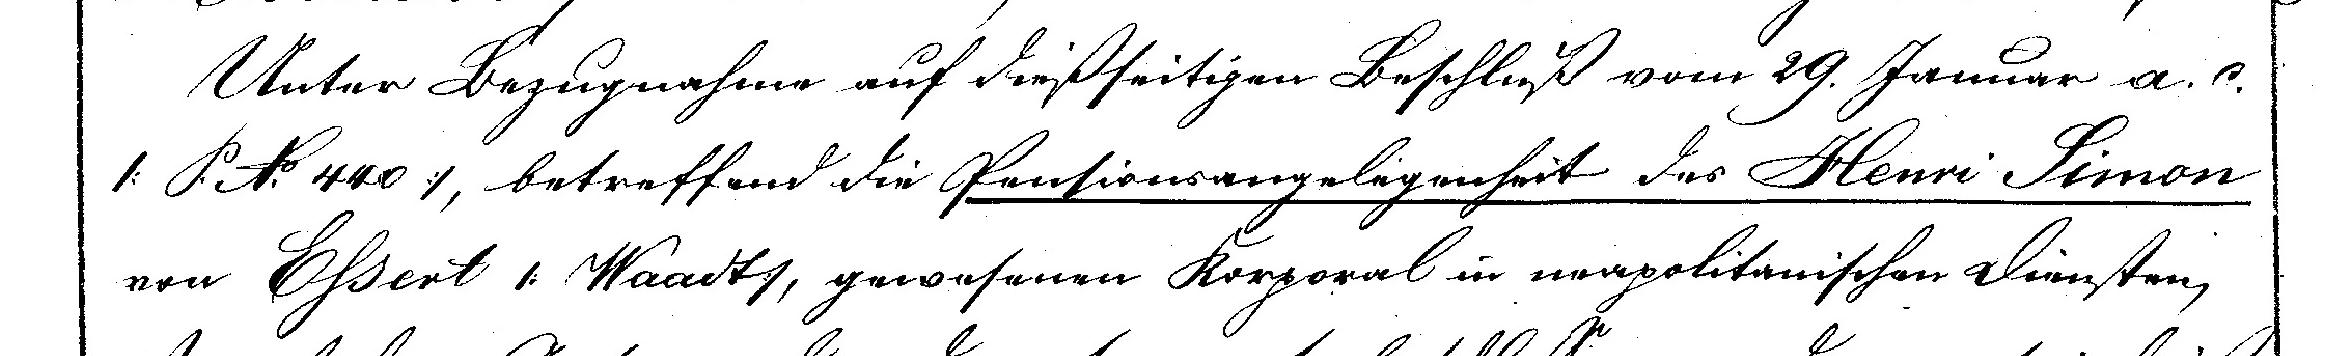 Unter Bezugnahme auf dießseitigen Beschluß vom 29. Januar a. c.
/: P. No. 440 :/, betreffend die Pensionsangelegenheit des Henri Simon
von Essert /: Waadt :/, gewesenen Korporal in neapolitanischen Diensten,